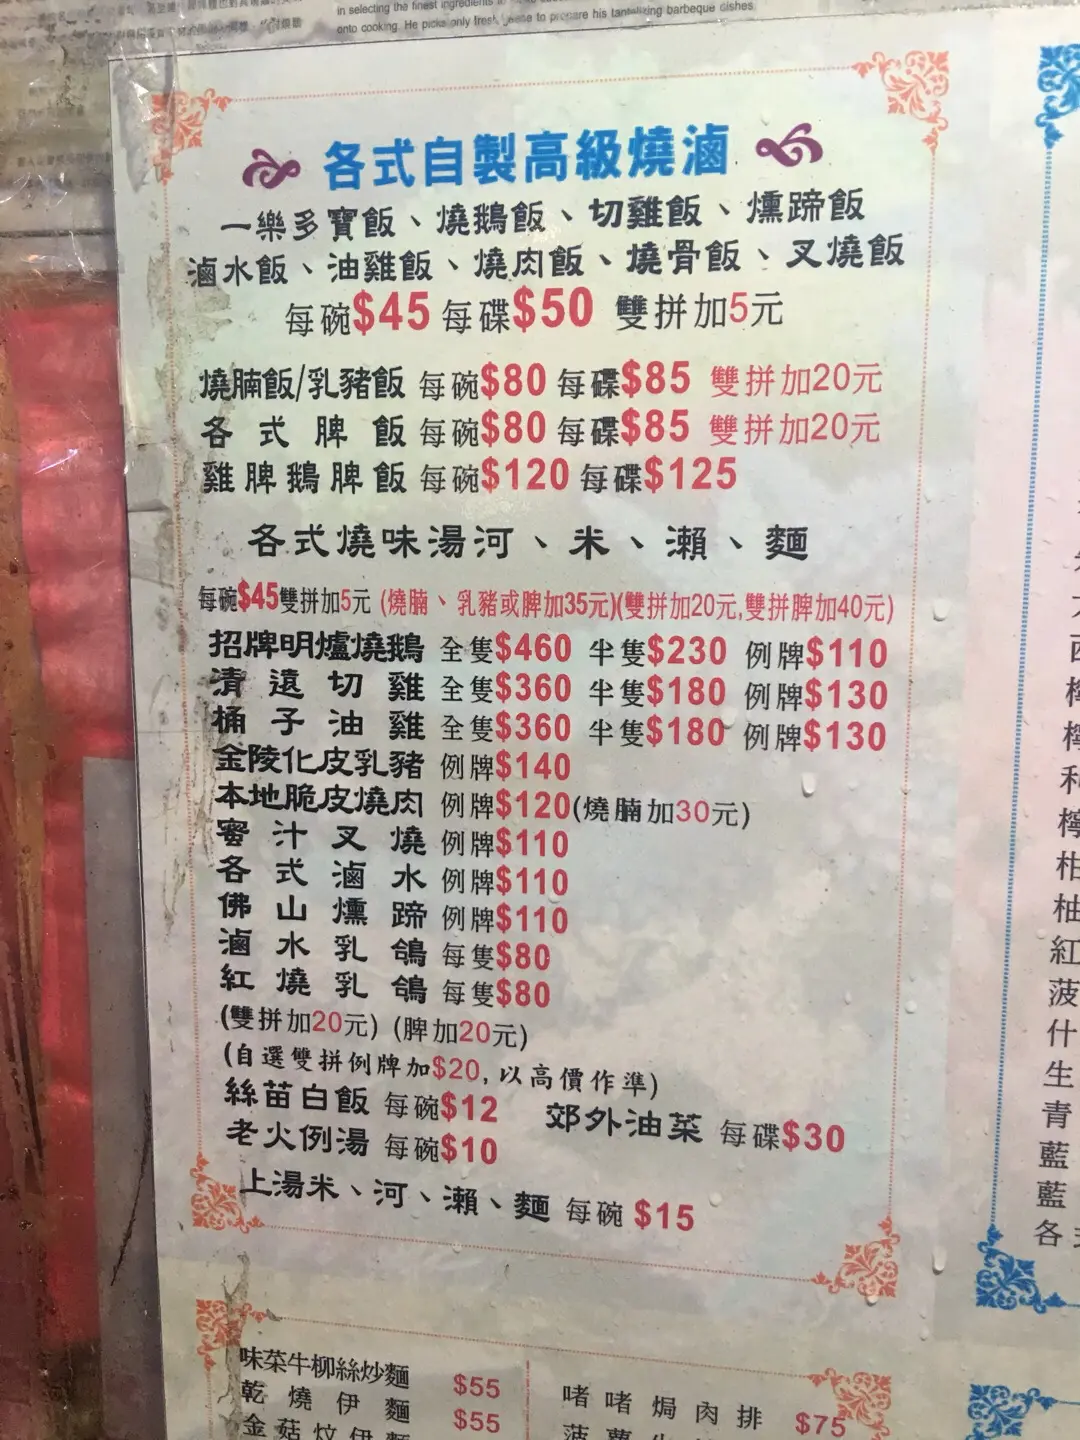 in selecting the finest ingredients
onto cooking. He picks only fresh
to prepare his tantalizing barbeque dishes
各式自製高級燒滷
一樂多寶飯、燒鵝飯、切雞飯、燻蹄飯
滷水飯、油雞飯、燒肉飯、燒骨飯、叉燒飯
每碗$45 每碟$50 雙拼加5元
燒腩飯/乳豬飯 每碗$80 每碟$85 雙拼加20元
各式脾飯 每碗$80 每碟$85 雙拼加20元
雞脾鵝脾飯 每碗$120 每碟$125
各式燒味湯河、米、瀨、麵
每碗$45雙拼加5元 (燒腩、乳豬或脾加35元)(雙拼加20元,雙拼脾加40元)
招牌明爐燒鵝 全隻$460 半隻$230 例牌$110
清遠切雞 全隻$360 半隻$180 例牌$130
桶子油雞 全隻$360 半隻$180 例牌$130
金陵化皮乳豬 例牌$140
本地脆皮燒肉 例牌$120(燒腩加30元)
蜜汁叉燒 例牌$110
各式滷水 例牌$110
佛山燻蹄 例牌$110
滷水乳鴿 每隻$80
紅燒乳鴿 每隻$80
(雙拼加20元) (脾加20元)
(自選雙拼例牌加$20,以高價作準)
絲苗白飯 每碗$12
郊外油菜 每碟$30
老火例湯 每碗$10
上湯米、河、瀨、麵 每碗 $15
味菜牛柳絲炒麵 $55
乾燒伊麵 $55
金菇炆伊麵
啫啫焗肉排 $75
菠蘿
利
檸
柑
柚
紅
菠
什
生
青
藍
藍
各式